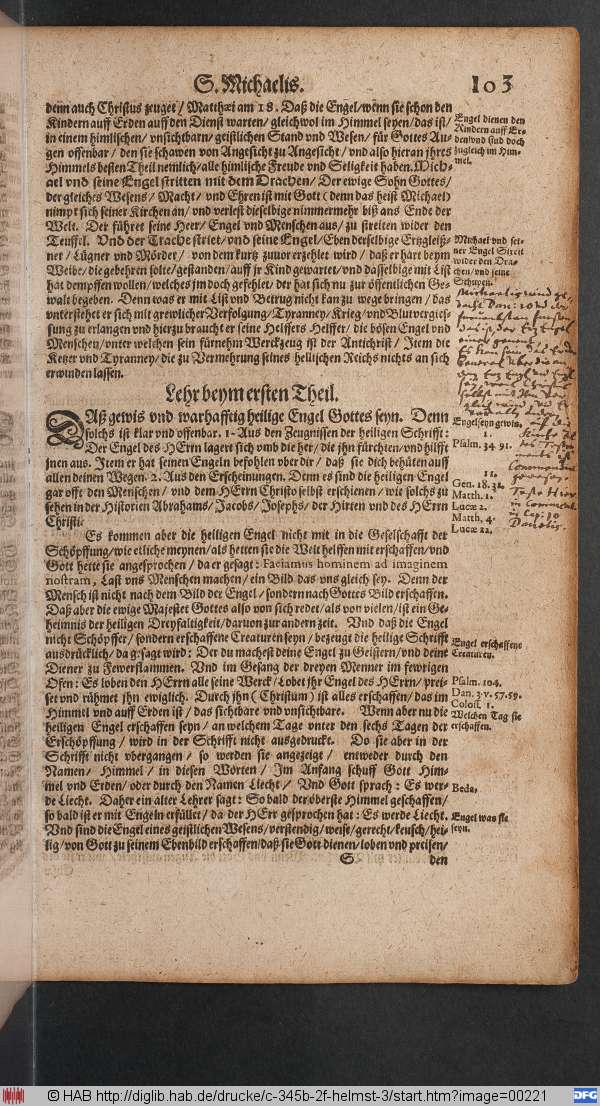 S. Michaelis. 103
denn auch Christus zeuget / Matthæi am 18. Daß die Engel / wenn sie schon den
Kindern auff Erden auff den Dienst warten / gleichwol im Himmel seyen / das ist /
in einem himlischen / vnsichtbarn / geistlichen Stand vnd Wesen / für Gottes Au-
gen offenbar / den sie schawen von Angesicht zu Angesicht / vnd also hieran jhres
Himmels besten Theil nemlich / alle himlische Freude vnd Seligkeit haben. Mich-
ael vnd seine Engel stritten mit dem Drachen / Der ewige Sohn Gottes /
der gleiches Wesens / Macht / vnd Ehren ist mit Gott (denn das heist Michael)
nimpt sich seiner Kirchen an / vnd verlest dieselbige nimmermehr biß ans Ende der
Welt. Der führet seine Heer / Engel vnd Menschen aus / zu streiten wider den
Teuffel. Vnd der Trache striet / vnd seine Engel / Eben derselbige Ertzgleiß-
ner / Lügner vnd Mörder / von dem kurtz zuuor erzehlet wird / daß er hart beym
Weibe / die gebehren solte / gestanden / auff jr Kind gewartet / vnd dasselbige mit List
hat dempffen wollen / welches jm doch gefehlet / der hat sich nu zur öffentlichen Ge-
walt begeben. Denn was er mit List vnd Betrug nicht kan zu wege bringen / das
vnterstehet er sich mit grewlicher Verfolgung / Tyranney / Krieg / vnd Blutvergies-
sung zu erlangen vnd hierzu braucht er seine Helffers Helffer / die bösen Engel vnd
Menschen / vnter welchen sein fürnehm Werckzeug ist der Antichrist / Item die
Ketzer vnd Tyranney / die zu Vermehrung seines hellischen Reichs nichts an sich
erwinden lassen.
Lehr beym ersten Theil.
DAß gewis vnd warhafftig heilige Engel Gottes seyn. Denn
solchs ist klar vnd offenbar. 1. Aus den Zeugnissen der heiligen Schrifft:
Der Engel des HErrn lagert sich vmb die her / die jhn fürchten / vnd hilfft
jnen aus. Item er hat seinen Engeln befohlen vber dir / daß sie dich behüten auff
allen deinen Wegen. 2. Aus den Erscheinungen. Denn es sind die heiligen Engel
gar offt den Menschen / vnd dem HErrn Christo selbst erschienen / wie solchs zu
sehen in der Historien Abrahams / Jacobs / Josephs / der Hirten vnd des HErrn
Christi.
Es kommen aber die heiligen Engel nicht mit in die Geselschafft der
Schöpffung / wie etliche meynen / als hetten sie die Welt helffen mit erschaffen / vnd
Gott hette sie angesprochen / da er gesagt: Faciamus hominem ad imaginem
nostram, Last vns Menschen machen / ein Bild das vns gleich sey. Denn der
Mensch ist nicht nach dem Bild der Engel / sondern nach Gottes Bild erschaffen.
Daß aber die ewige Majestet Gottes also von sich redet / als von vielen / ist ein Ge-
heimnis der heiligen Dreyfaltigkeit / daruon zur andern zeit. Vnd daß die Engel
nicht Schöpffer / sondern erschaffene Creaturen seyn / bezeugt die heilige Schrifft
ausdrücklich / da gesagt wird: Der du machest deine Engel zu Geistern / vnd deine
Diener zu Fewerflammen. Vnd im Gesang der dreyen Menner im fewrigen
Ofen: Es loben den HErrn alle seine Werck / Lobet jhr Engel des HErrn / prei-
set vnd rühmet jhn ewiglich. Durch jhn (Christum) ist alles erschaffen / das im
Himmel vnd auff Erden ist / das sichtbare vnd vnsichtbare. Wenn aber nu die
heiligen Engel erschaffen seyn / an welchem Tage vnter den sechs Tagen der
Erschöpffung / wird in der Schrifft nicht ausgedruckt. Do sie aber in der
Schrifft nicht vbergangen / so werden sie angezeigt / entweder durch den
Namen / Himmel / in diesen Worten / Im Anfang schuff Gott Him-
mel vnd Erden / oder durch den Namen Liecht / Vnd Gott sprach: Es wer-
de Liecht. Daher ein alter Lehrer sagt: So bald der öberste Himmel geschaffen /
so bald ist er mit Engeln erfüllet / da der HErr gesprochen hat: Es werde Liecht.
Vnd sind die Engel eines geistlichen Wesens / verstendig / weise / gerecht / keusch / hei-
lig / von Gott zu seinem Ebenbild erschaffen / daß sie Gott dienen / loben vnd preisen /
S den
Engel dienen den
Kindern auff Er-
den vnd sind doch
zugleich im Him-
mel.
Michael vnd sei-
ner Engel Streit
wider den Dra-
chen / vnd seine
Engel seyn gewis.
1.
Psalm. 34. 91.
2.
Gen. 18. 32.
Matth. 1.
Lucæ 2.
Matth. 4.
Lucæ 22.
Engel erschaffene
Creaturen.
Psalm. 104.
Dan. 3. v. 57. 59.
Coloss. 1.
Welchen Tag sie
erschaffen.
Beda,
Engel was sie
seyn.
© HAB http://diglib.hab.de/drucke/c-345b-2f-helmst-3/start.htm?image=00221
DFG